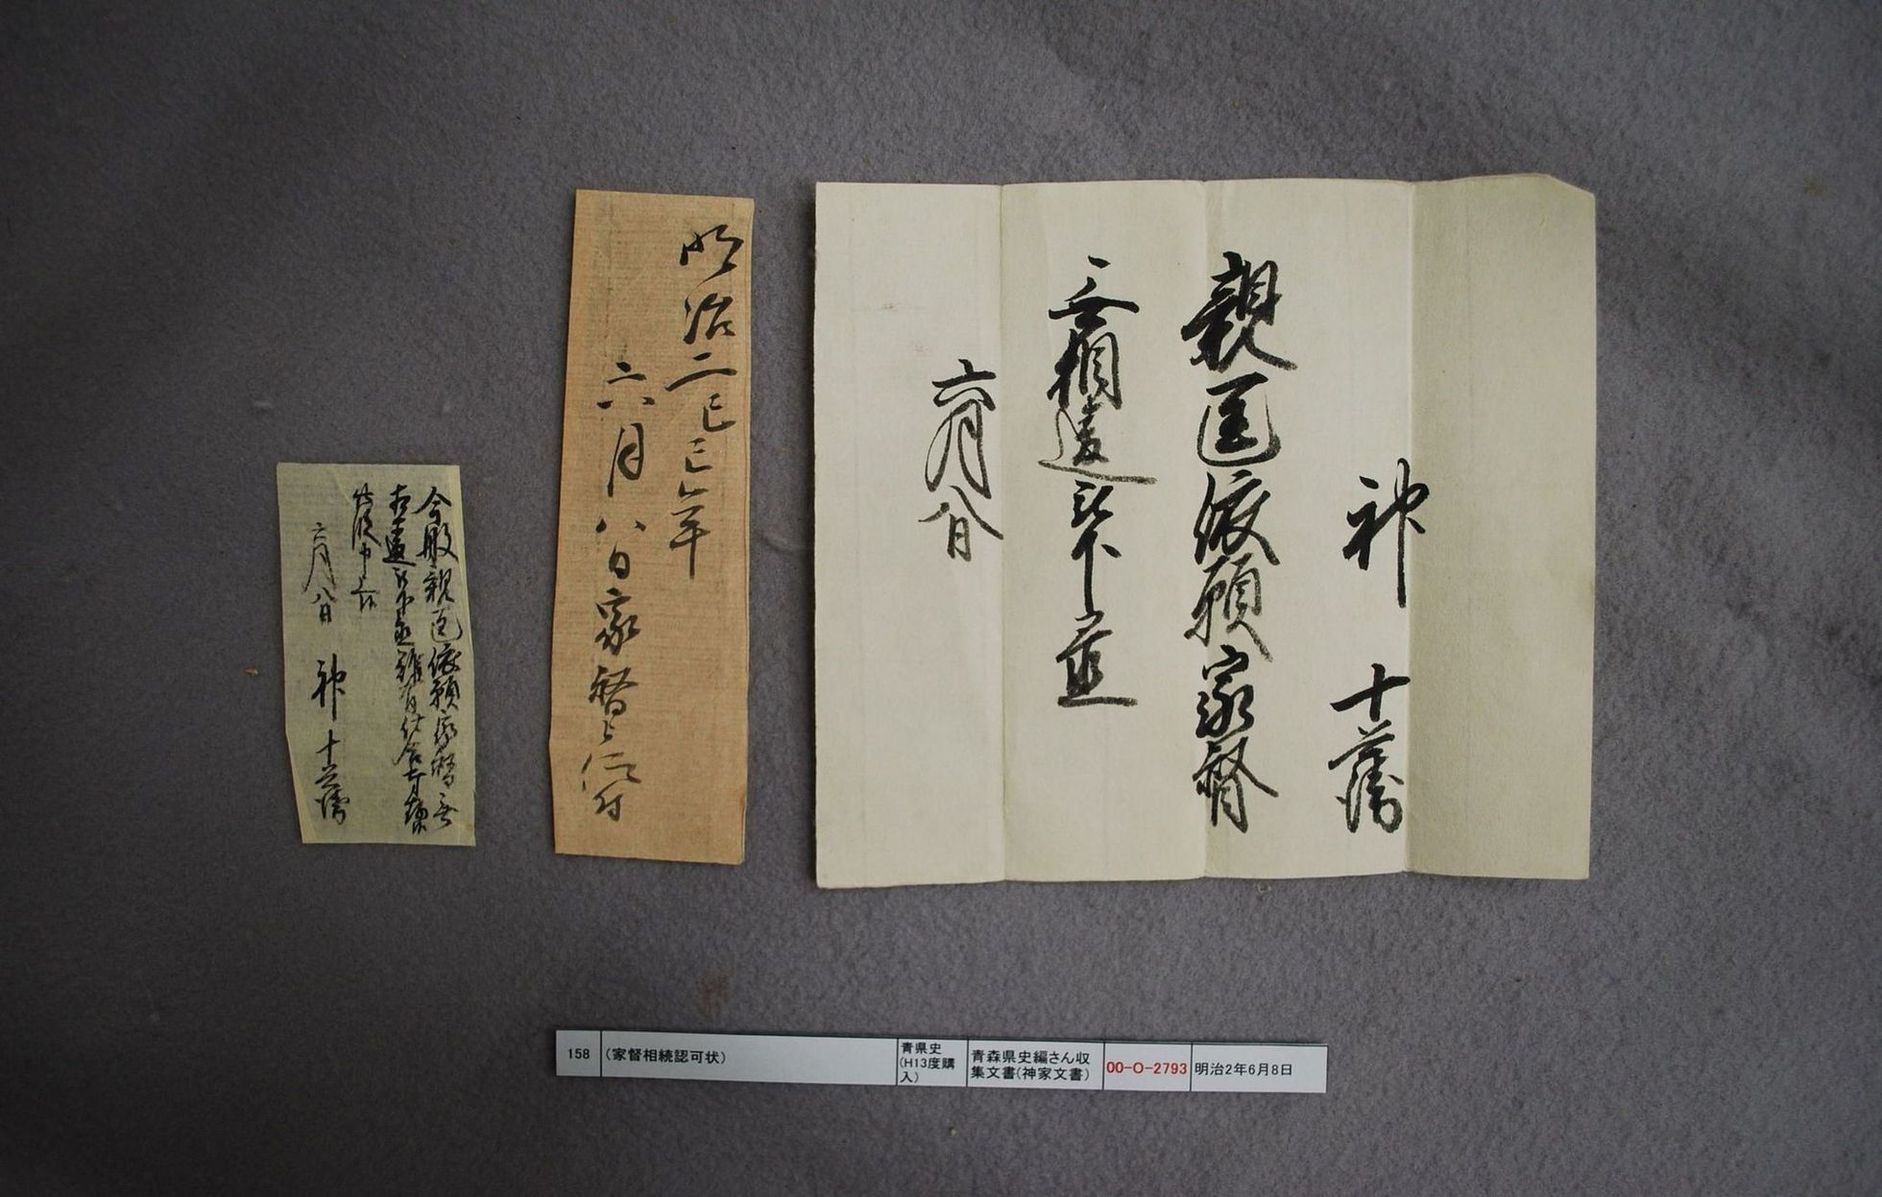 神　十蔵
親匡依願家督
無相違被下置
六月八日
明治二己巳年
六月八日家督被仰付
今般親匡依願家督無
相違被下置難有仕合
六月八日　神　十蔵
158
(家督相続認可状)
青県史
(H13度購
入)
青森県史編さん収
集文書(神家文書)
00-O-2793
明治2年6月8日